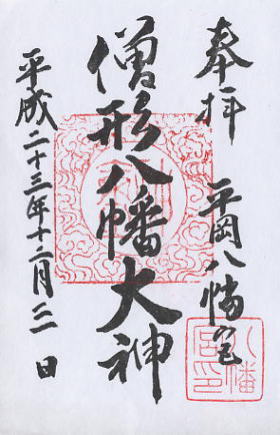 奉拝
平岡八幡宮
僧形八幡大神
平成二十三年十二月三日
八幡
宮印